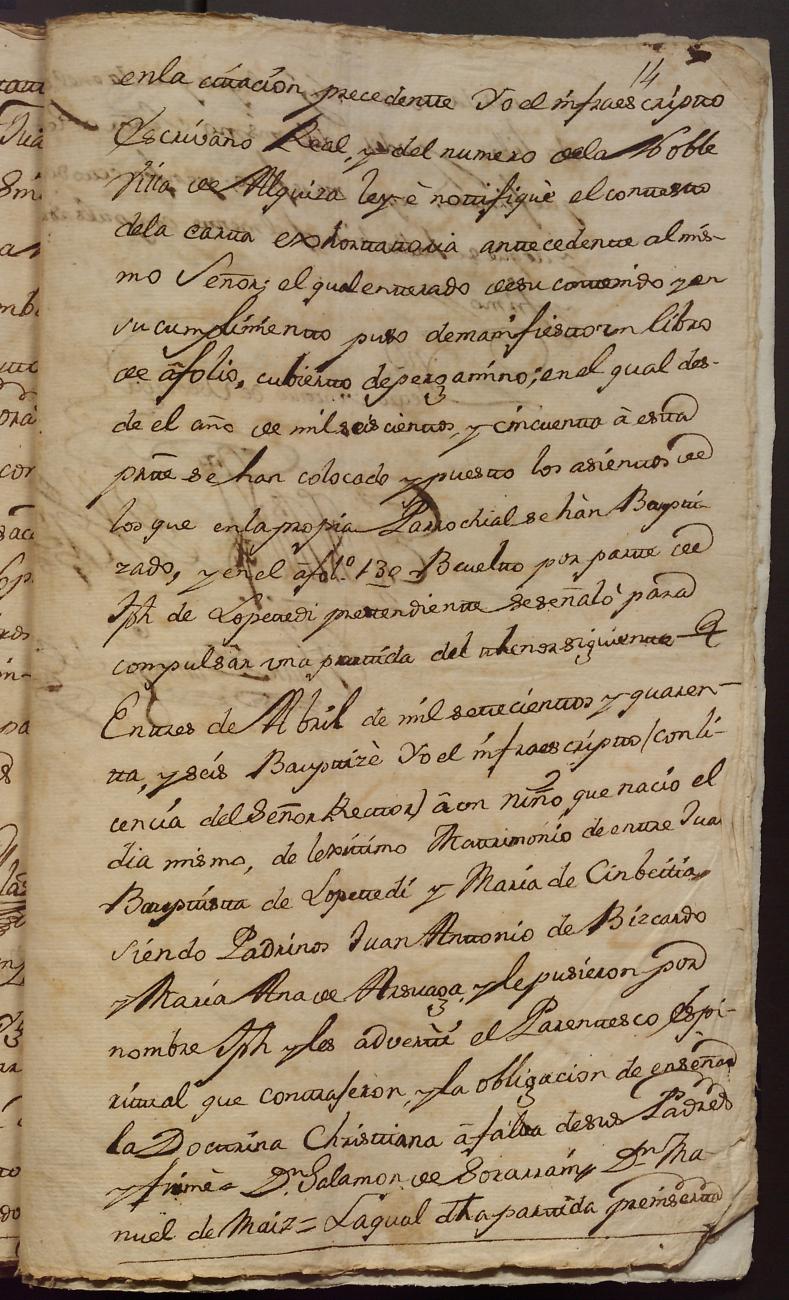 14
enla citacion precedente Yo el infraescripto
Escrivano Real, y del numero dela Noble
Villa de Alquiza ley è notifiquè el contesto
dela carta exhortatoria antecedente al mis-
mo Señor; el qual enterado desu contenido y en
su cumplimiento puso demanifiesto un libro
de âfolio, cubierto depergamino; en el qual des-
de el año de mil seiscientos, y cincuenta â esta
prte se han colocado y puesto los asientos de
los que enla propia Parrochial se hàn Bapti-
zado, y en el âfol.º 130 Buelto por parte de
Jph de Lopetedi pretendiente se señaló para
compulsàr una partida del thenor siguiente
Entres de Abril de mil setecientos y quaren-
ta, y seis Bauptizè Yo el infraescripto (con li-
cencia del Señor Rector) â un niño que nacio el
dia mismo, de lexitimo Matrimonio de entre Jua
Bauptista de Lopetedi y Maria de Cinbeitia,
siendo Padrinos Juan Antonio de Bizcardo
y Maria Ana de Arsuaga, y le pusieron por
nombre Jph y les advertì el Parentesco espi-
ritual que contrajeron, y la obligacion de enseñar
la Doctrina Christiana â falta desus Padres
y firmè = Dn Salamon de Sorarrain, Dn Ma-
nuel de Maiz = Laqual dha partida preinserta